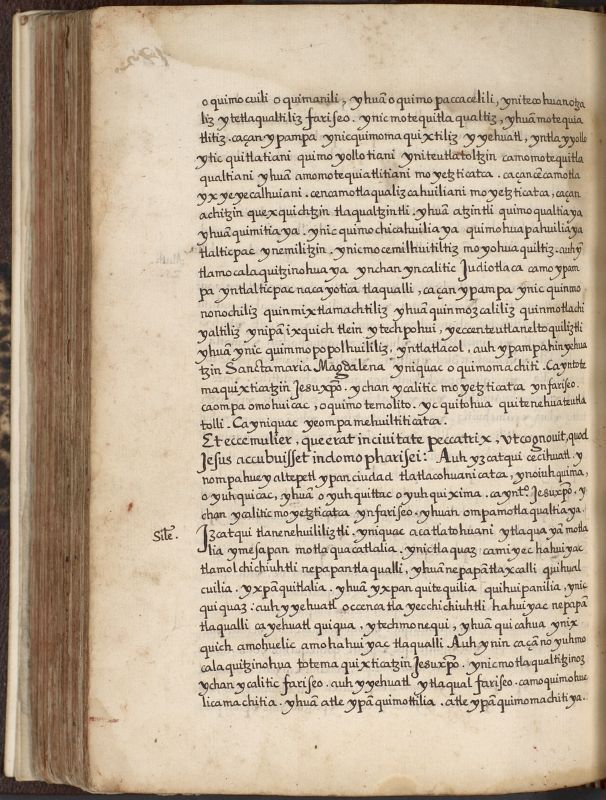 o quimo cuili o quimanili, yhuā o quimo paccacelili, yniteco huanotza
liz ytetlaqualtiliz fariseo. ynic motequitla qualtiz, yhuā motequia
tlitiz. caçan ypampa ynic quimoma quixtiliz yyehuatl, yntla yyollo
ytic quitlatiani quimo yollotiani yniteutlatoltzin camomotequitla
qualtiani yhuā amomotequiatlitiani moyetzticatca. caçancēcamotla
yxyeyecalhuiani. cencamotlaqualiz cahuiliani moyetzticatca, caçan
achitzin quexquichtzin tlaqualtzintli. yhuā atzintli quimoqualtiaya
yhuā quimitiaya. ynic quimo chicahuilia ya quimohuapahuilia ya
tlalticpac ynemilitzin. ynicmocemiltiuitiltiz moyohuaquiltiz. auh yn
tlamocalaquitzinohuaya ynchan yncalitic Judiotlaca camo ypam
pa yntlalticpac nacayotica tlaqualli, caçan ypampa ynic quinmo
nonochiliz quinmixtlamachtiliz yhuā quinmozcaliliz quinmotlachi
yaltiliz ynipā ixquich tlein ytechpohui, yeccenteutlaneltoquiliztli
yhuā ynic quinmopopolhuililiz, yntlatlacol, auh ypampahin yehua
tzin Sancta maria Magdalena yniquac o quimomachiti. Cayntote
maquixticatzin Jesuxp̄o. ychan ycalitic moyetzticatca yn fariseo.
caompa omohuicac, o quimotemolito. yc quitohua quitenehua teutla
tolli. Cayniquac yeompamehuiltiticatca.
Et ecce mulier, que erat in ciuitate peccatrix, vt cognouit, quod
Jesus accubuisset in domo pharisei: Auh yzcatqui cecihuatl. y
nompa huey altepetl ypan ciudad tlatlacohuani catca, ynoiuhquima,
o yuhquicac, yhuā o yuhquittac o yuhquixima. caynt.º Jesuxp̄o. y
chan ycalitic moyetzticatca yn fariseo. yhuan ompamotlaqualtiaya.
Sile. Jzcatqui tlanenehuililiztli. yniquac acatlatohuani ytlaqua yā motla
lia ymesapan motlaquacatlalia. ynictlaquaz camiyec hahuiyac
tlamolchichiuhtli nepapan tlaqualli, yhuā nepapā tlaxcalli quihual
cuilia. yxpā quitlalia. yhuā yxpan quitequilia quihuipanilia, ynic
quiquaz: auh yyehuatl occencatla yecchichiuhtli hahuiyac nepapā
tlaqualli cayehuatl quiqua, ytechmonequi, yhuā quicahua ynix
quich amohuelic amohahuiyac tlaqualli. Auh ynin caçāno yuhmo
calaquitzinohua totemaquixticatzin Jesuxp̄o. ynic motlaqualtitzinoz
ychan ycalitic fariseo. auh yyehuatl ytlaqual fariseo. camoquimohue
licamachitia. yhuā atle ypā quimottilia. atle ypā quimomachitiya.